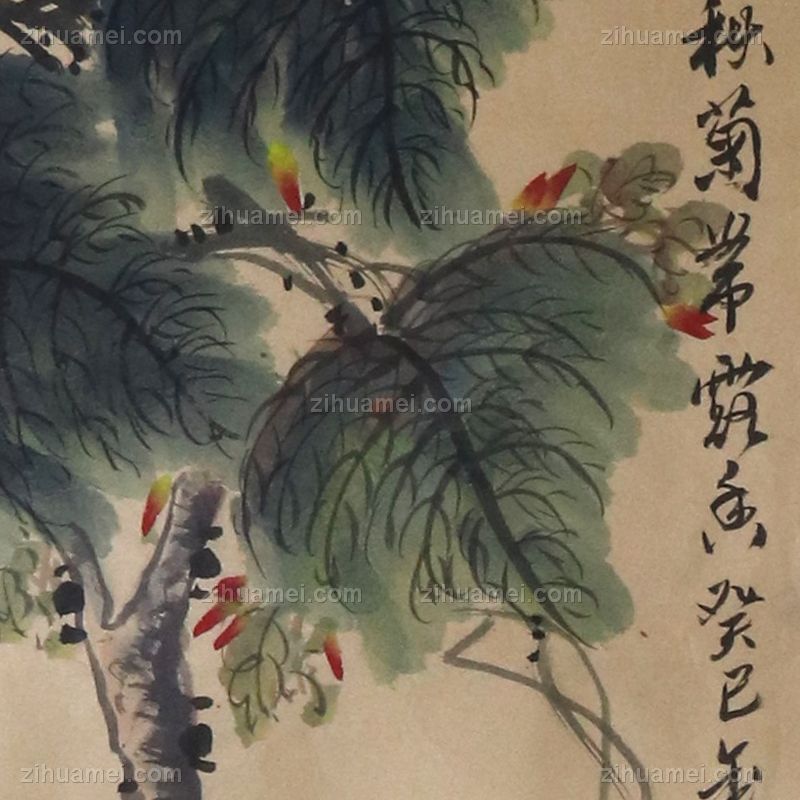 秋菊带露香癸巳年
zihuamei.com zihuamei.com
zihuamei.com zihuamei.com
zihuamei.com
zihuamei.com zihuamei.com
zihuamei.com zihuamei.com